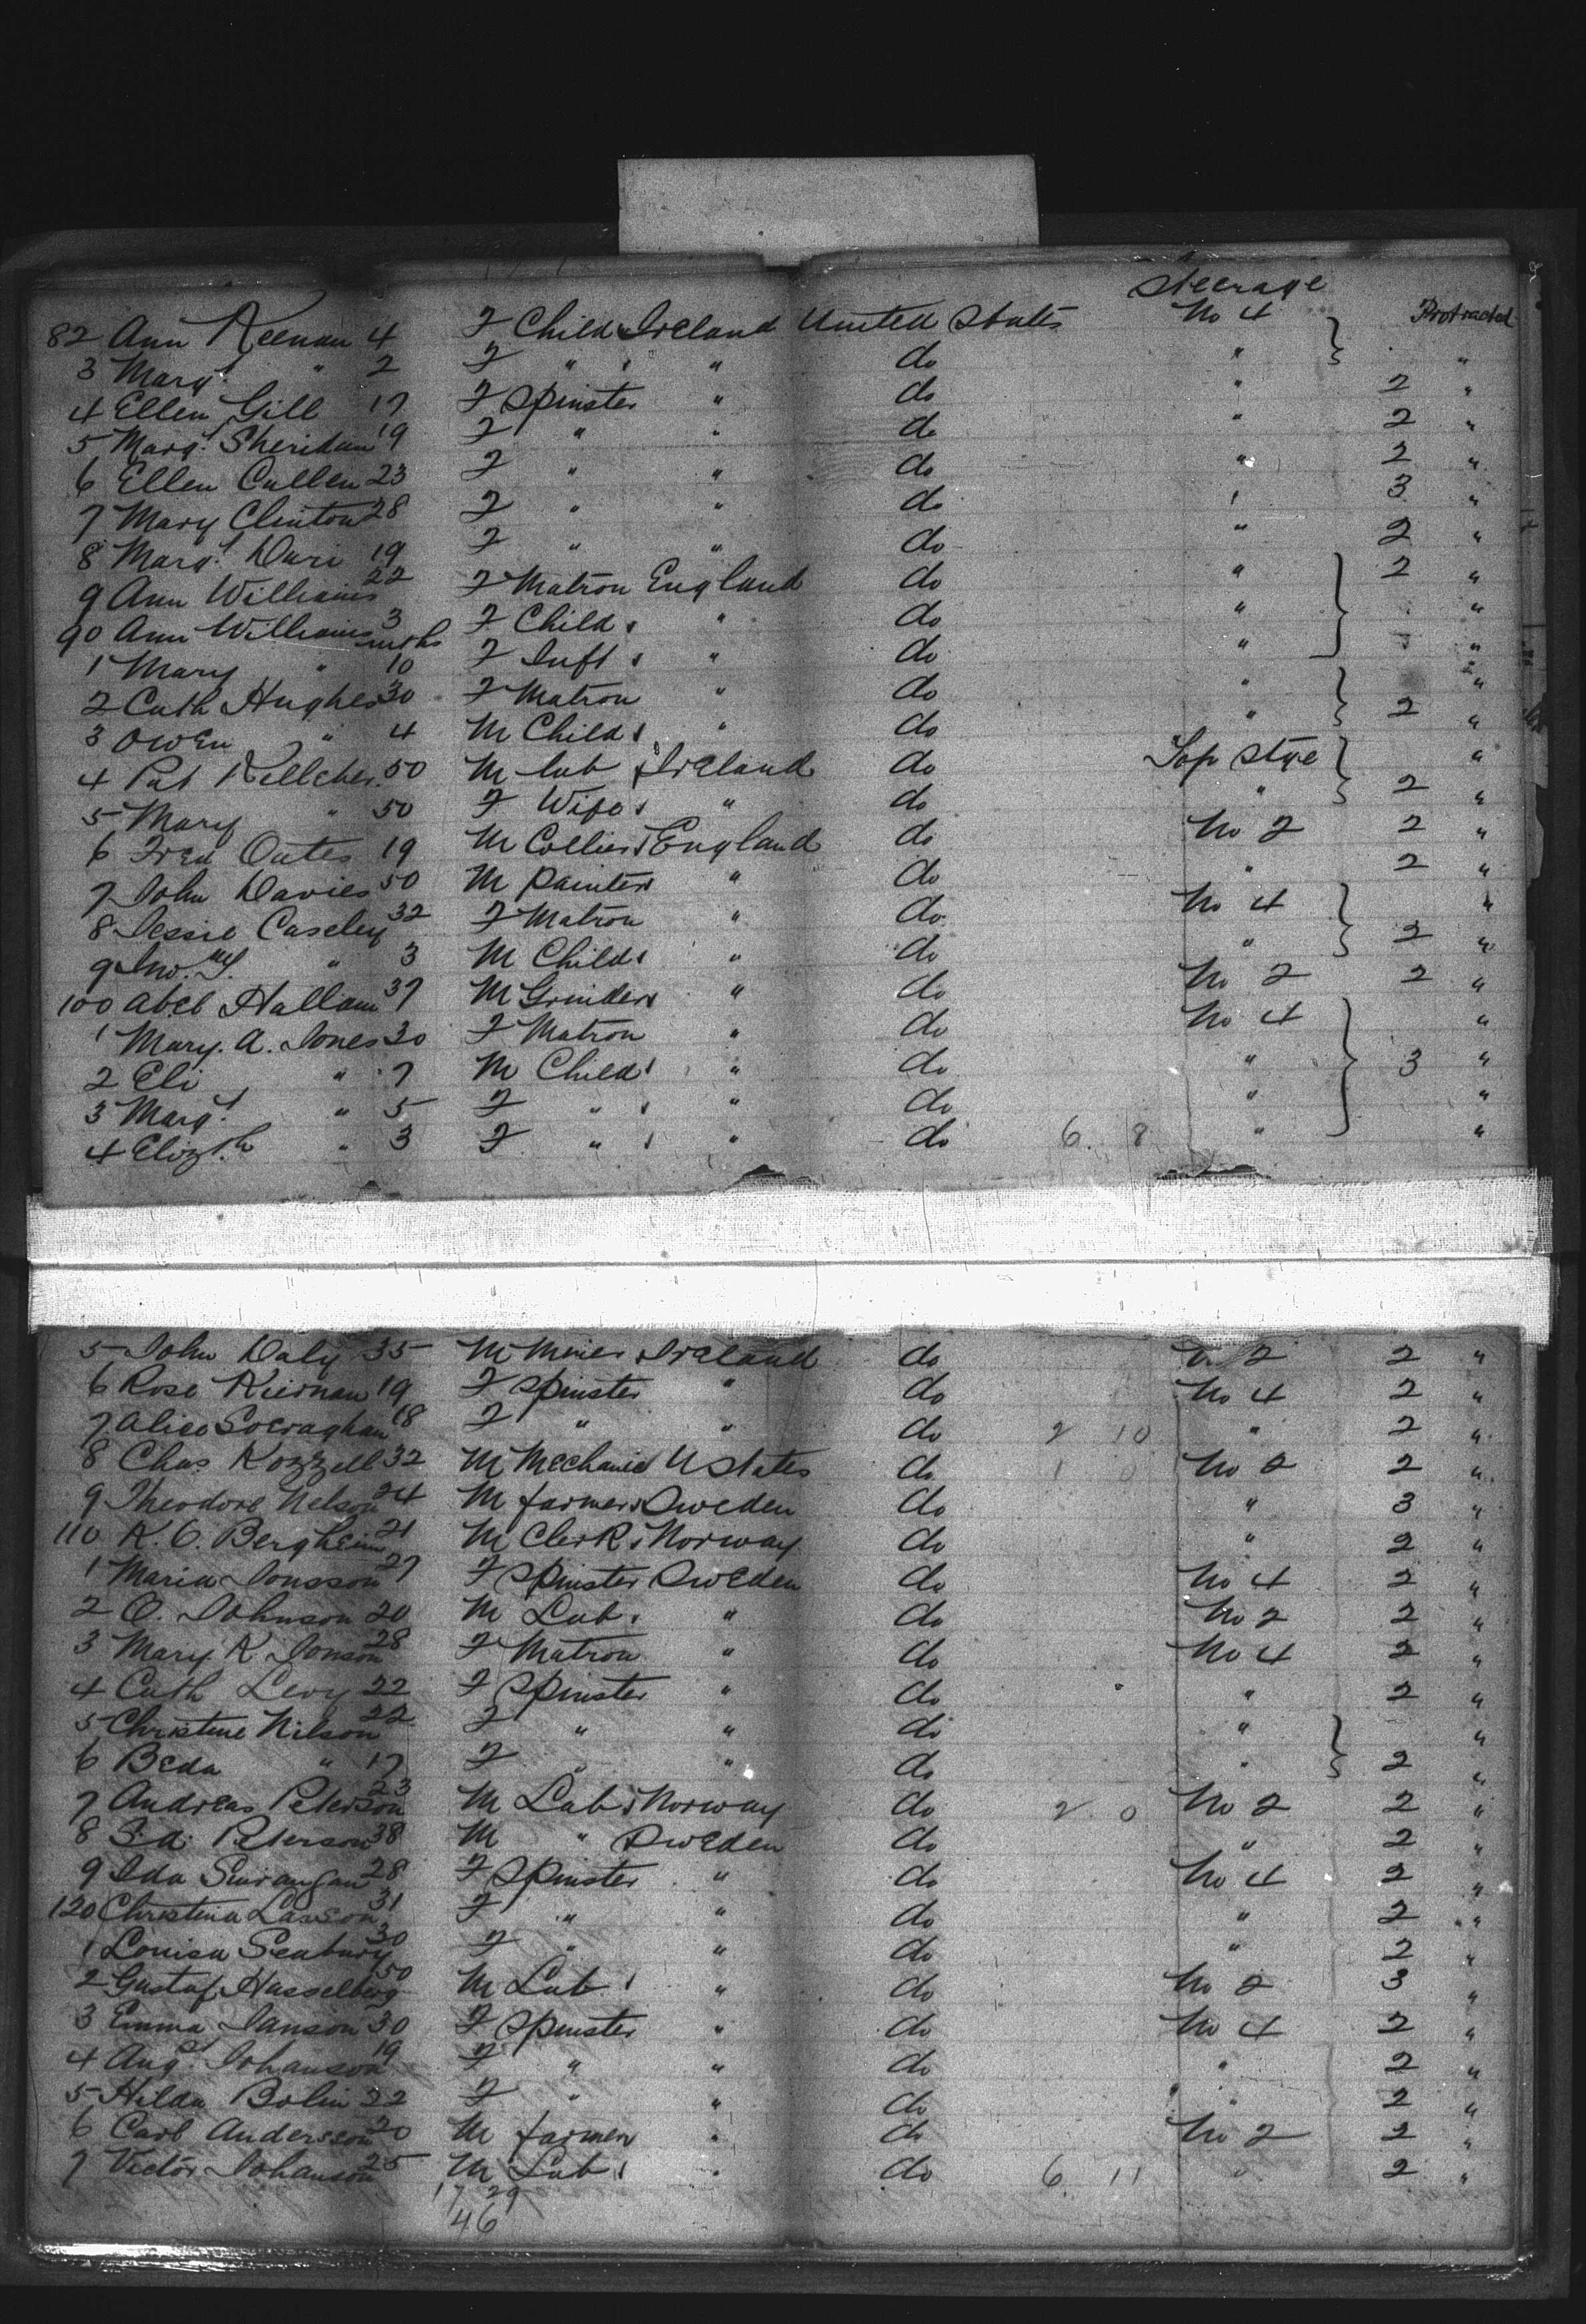 Steerage
82 Ann Keenan 4 F Child Ireland United States No 4 Protracted
3 Margt " 2 F " " do " "
4 Ellen Gill 17 F Spinster " do " 2 "
5 Margt Sheridan 19 F " " do " 2 "
6 Ellen Cullen 23 F " " do " 2 "
7 Mary Clinton 28 F " " do " 3 "
8 Margt Dari 19 F " " do " 2 "
9 Ann Williams 22 F Matron England do " 2 "
90 Ann Williams 3 F Child " do " "
1 Mary " 10 mths F Inft " do " "
2 Cath Hughes 30 F Matron " do " "
3 Owen " 4 M Child " do " 2 "
4 Pat Kelleher 50 M Lab Ireland do Top stge "
5 Mary " 50 F Wife " do " 2 "
6 Fred Oates 19 M Collier England do No 2 2 "
7 John Davies 50 M Painter " do " 2 "
8 Jessie Caseley 32 F Matron " do No 4 "
9 Jno. " 3 M Child " do " 2 "
100 Abel Hallam 37 M Grinder " do No 2 2 "
1 Mary. A. Jones 30 F Matron " do No 4 "
2 Eli " 7 M Child " do " 3 "
3 Margt " 5 F " " do " "
4 Elizth " 3 F " " do 6 8 " "
5 John Daly 35 M Miner Ireland do No 2 2 "
6 Rose Kiernan 19 F Spinster " do No 4 2 "
7 Alice 18 F " " do 2 10 " 2 "
8 Chas Kozzell 32 M Mechanic U States do 1 0 No 2 2 "
9 Theodore Nelson 24 M farmer Sweden do " 3 "
110 K. O. Bergheim 21 M Clerk Norway do " 2 "
1 Maria Jonsson 27 F Spinster Sweden do No 4 2 "
2 O. Johnson 20 M Lab. " do No 2 2 "
3 Mary K Jonson 28 F Matron " do No 4 2 "
4 Cath Levy 22 F Spinster " do " 2 "
5 Christine Nilson 22 F " " do " "
6 Beda " 17 F " " do " 2 "
7 Andreas Peterson 23 M Lab Norway do 2 0 No 2 2 "
8 Peterson 38 M " Sweden do " 2 "
9 Ida 28 F Spinster " do No 4 2 "
120 Christina Lasson 31 F " " do " 2 "
1 Louisa Seabury 30 F " " do " 2 "
2 Gustaf Hasselberg 50 M Lab " do No 2 3 "
3 Emma Janson 30 F Spinster " do No 4 2 "
4 Augt Johanson 19 F " " do " 2 "
5 Hilda Bolin 22 F " " do " 2 "
6 Carl Andersson 20 M farmer " do No 2 2 "
7 Victor Johanson 25 M Lab " do 6 11 " 2 "
17 29
46